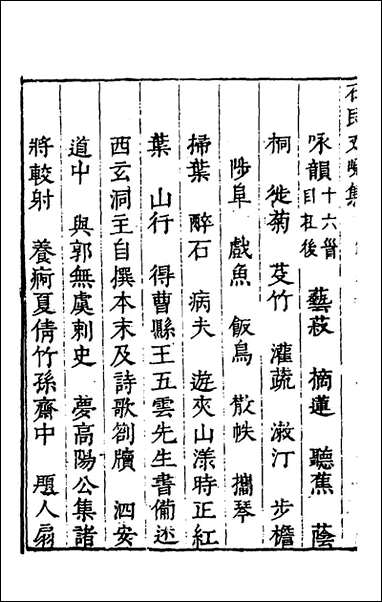 石民又峴集
咏韻十六首目在後　藝菽　摘蓮　聽蕉　蔭
桐　徙菊　芟竹　灌蔬　漱汀　步檐
陟阜　戲魚　飯鳥　散帙　攜琴
掃葉　醉石　病夫　遊夾山漾時正紅
葉　山行　得曹縣王五雲先生書備述
西玄洞主自撰本末及詩歌劄牘　泗安
道中　與郭無虞刺史　夢高陽公集諸
將較射　養痾夏倩竹孫齋中　題人扇